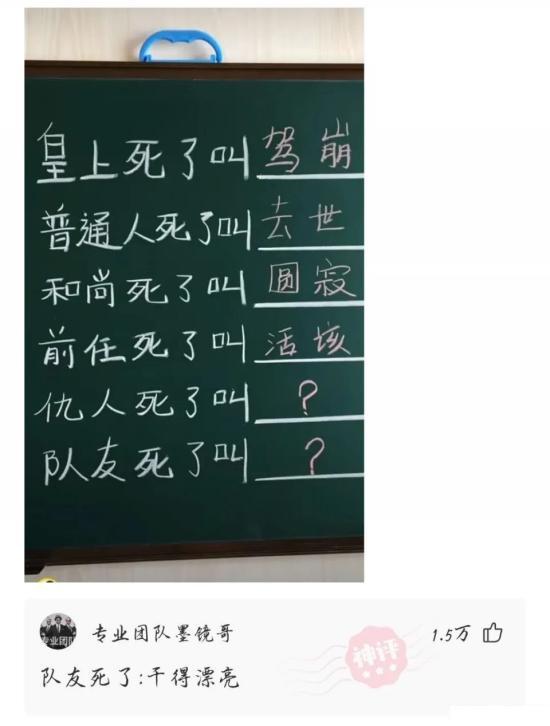 皇上死了叫驾崩
普通人死了叫去世
和尚死了叫圆寂
前任死了叫活该
仇人死了叫?
队友死了叫?
专业团队
专业团队墨镜哥
神评
1.5万
队友死了:干得漂亮